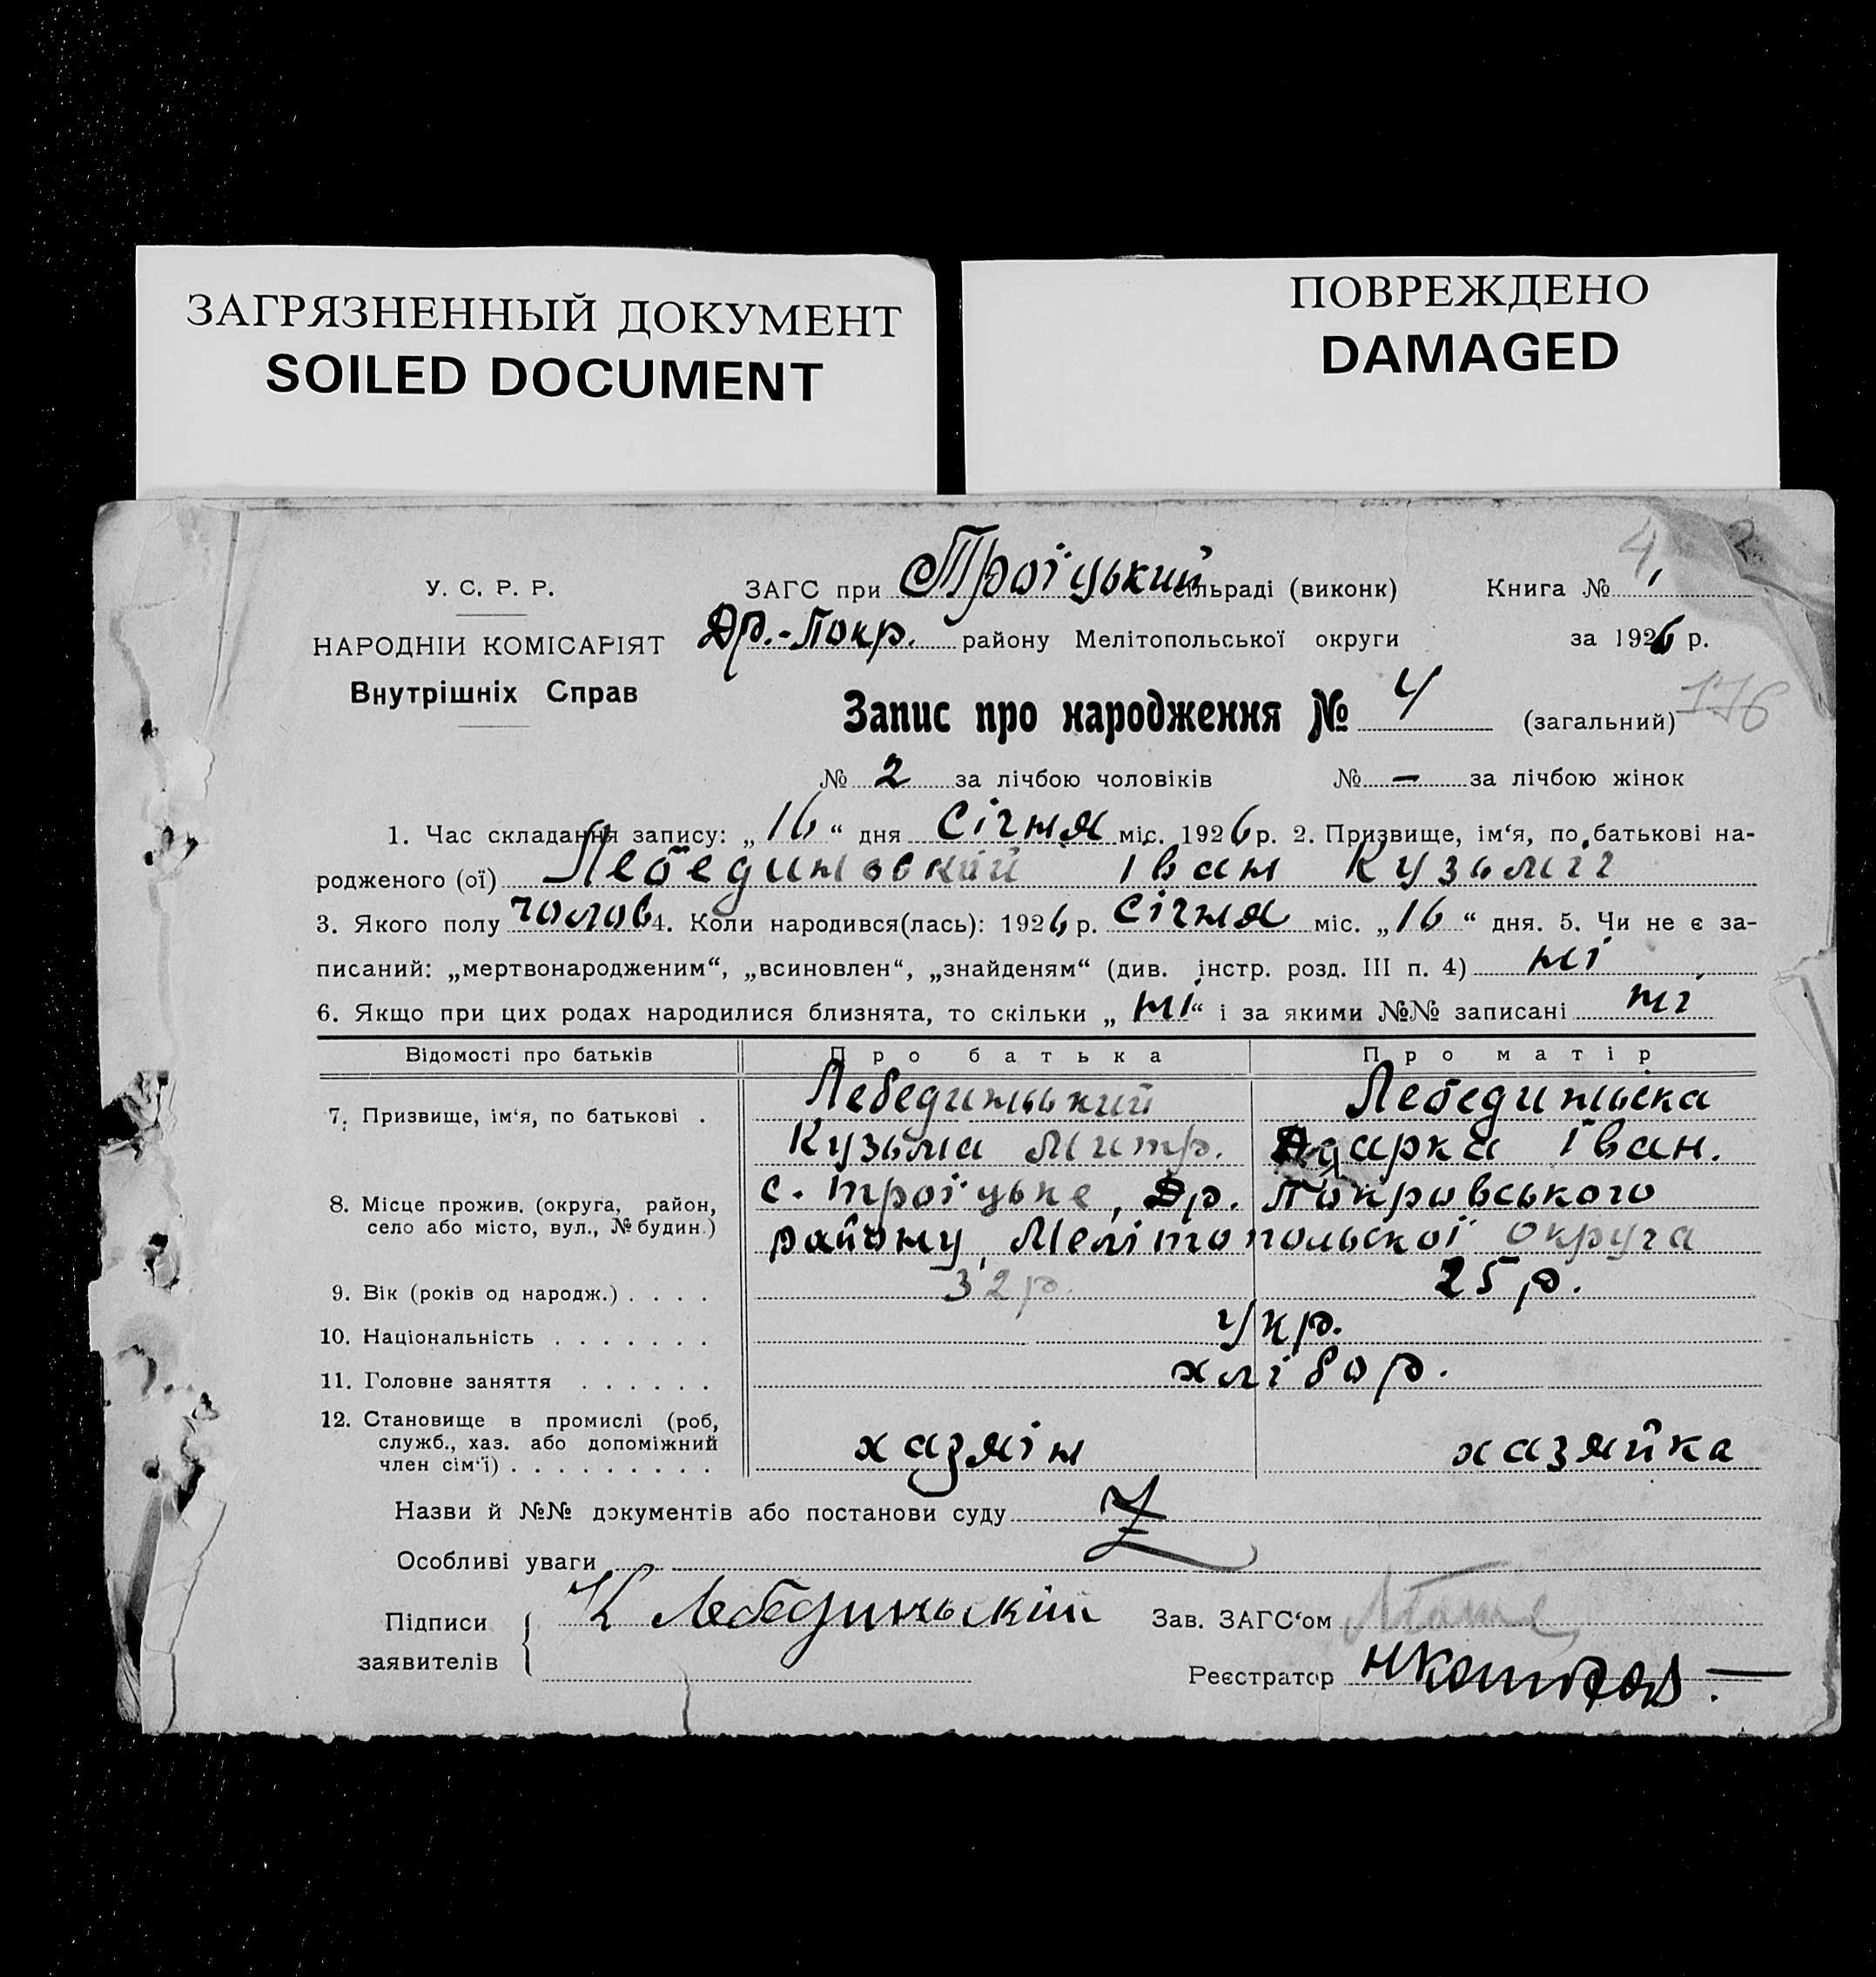 ЗАГРЯЗНЕННЫЙ ДОКУМЕНТ
SOILED DOCUMENT
ПОВРЕЖДЕНО
DAMAGED
4 2
У. С. Р. Р. ЗАГС при Троїцький сільраді (виконк) Книга № 1
НАРОДНІЙ КОМІСАРІЯТ Др.-Покр. району Мелітопольської округи за 1926 р.
Внутрішніх Справ
Запис про народження № 4 (загальний) 176
№ 2 за лічбою чоловіків № — за лічбою жінок
1. Час складання запису: „16“ дня Січня міс. 1926 р. 2. Призвище, ім‘я, по батькові на-
родженого (ої) Лебединський Іван Кузьміч
3. Якого полу чолов 4. Коли народився(лась): 1926 р. Січня міс. „16“ дня. 5. Чи не є за-
писаний: „мертвонародженим“, „всиновлен“, „знайденям“ (див. інстр. розд. III п. 4) ні
6. Якщо при цих родах народилися близнята, то скільки „ні“ і за якими №№ записані ні
Відомості про батьків Про батька Про матір
7. Призвище, ім‘я, по батькові . Лебединський Лебединьска
Кузьма Митр. Одарка Іван.
8. Місце прожив. (округа, район, с. Троїцьке, Др. Покровського
село або місто, вул., № будин.) району, Мелітопольскої округа
9. Вік (років од народж.) . . . . 32 р. 25 р.
10. Національність . . . . . . . укр.
11. Головне заняття . . . . . . хлібор.
12. Становище в промислі (роб,
служб., хаз. або допоміжний хазяін хазяйка
член сім‘ї) . . . . . . . . .
Назви й №№ документів або постанови суду
Особливі уваги
Підписи К Лебединьскій Зав. ЗАГС‘ом
заявителів Реєстратор